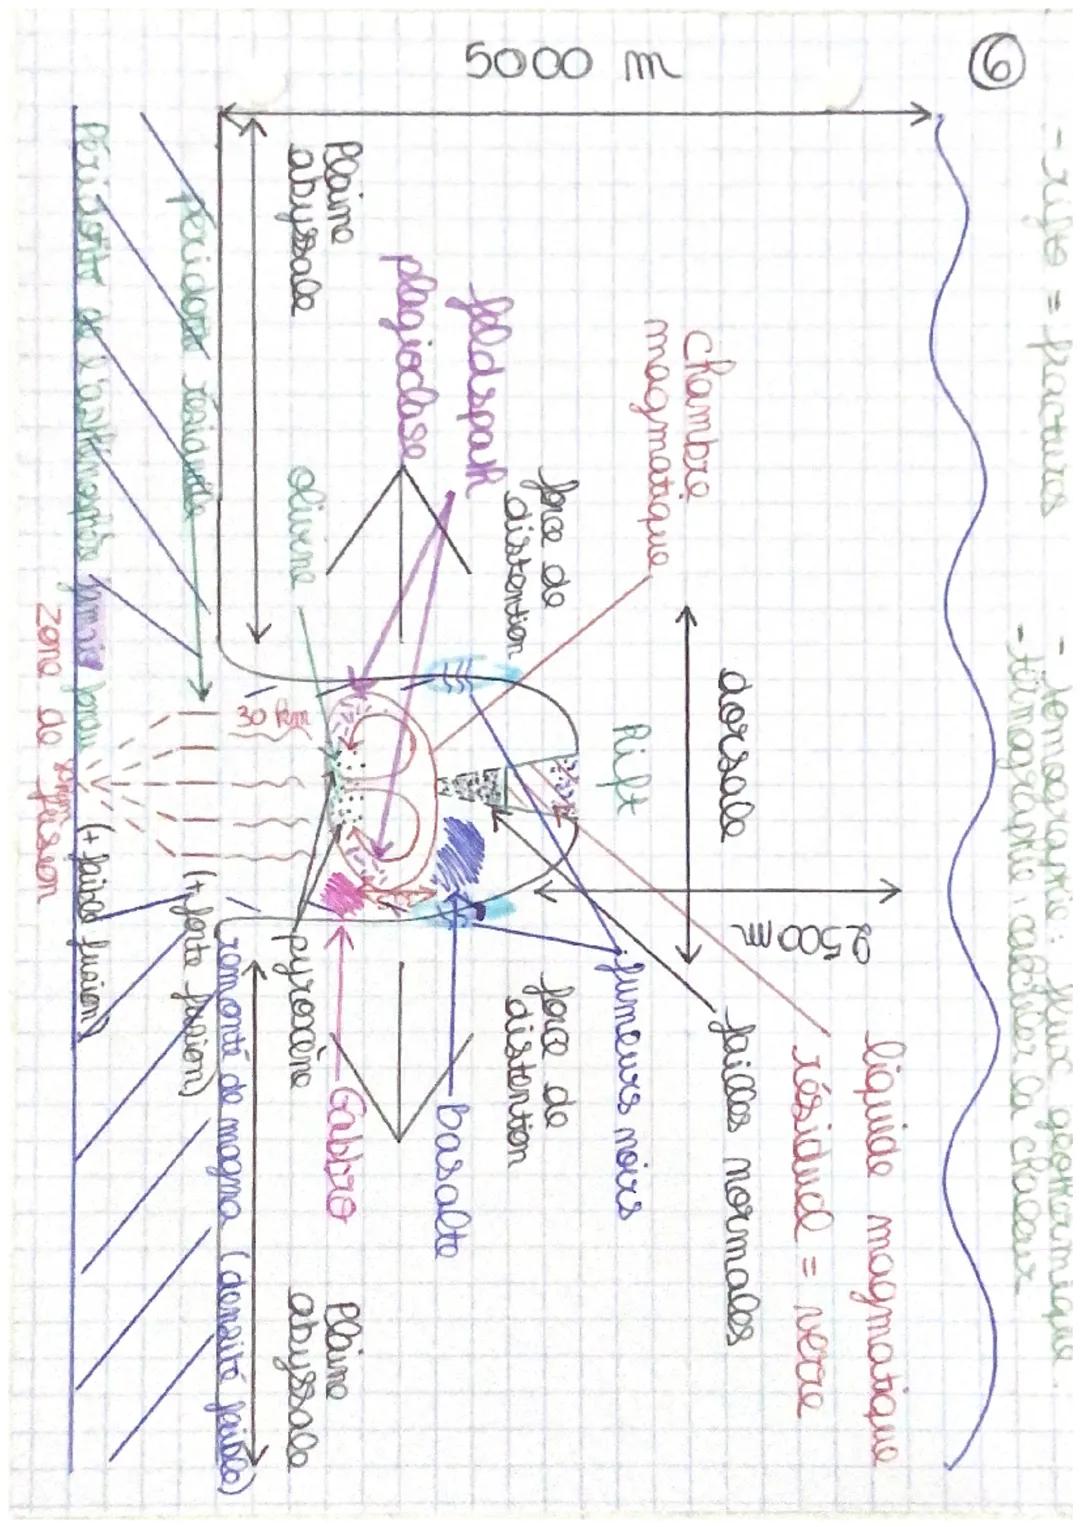 6
- rifts = fractures
- tomographie : flux géothermique
- termographie : calculer la chaleur
5000 m
dorsale
2500 m
liquide magmatique
résiduel = verre
chambre
magmatique
Rift
failles normales
fumeurs noirs
force de
distention
force de
distention
feldspath
plagioclase
Basalte
Gabbro
olivine
pyroxène
Plaine
abyssale
Plaine
abyssale
30 km
remonté de magma (densité faible)
péridotite résiduelle
(+ forte fusion)
Péridotite de l'asthénosphère
(+ faible fusion)
zone de fusion